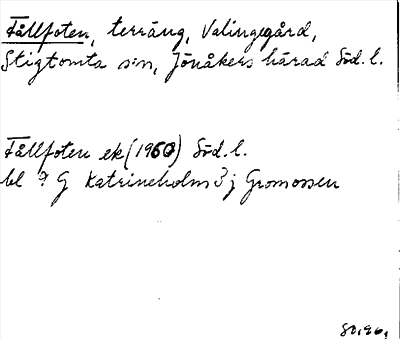 Fållfoten, terräng, Valingegård,
Stigtomta s:n, Jönåkers härad Söd. l.
Fållfoten ek (1960) Söd. l.
bl ? G Katrineholm 3 j Gromossen